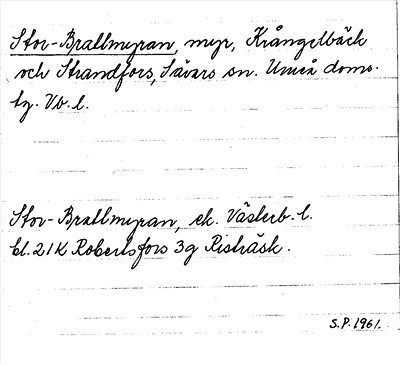 Stor-Brallmyran, myr, Krångelbäck
och Strandfors, Sävars sn. Umeå doms.
tg. Vb. l.
Stor-Brallmyran, ek. Västerb. l.
bl. 21K Robertsfors 3g Risträsk.
S.P. 1961.